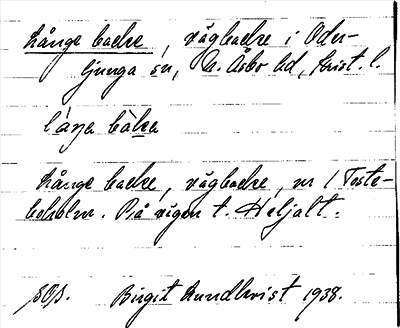 Långe backe, vägbacke i Oder-
ljunga sn, N. Åsbo hd, Krist. l.
låŋa bàka
Långe backe, vägbacke, nr 1 Toste-
boholm. På vägen t. Heljalt.
Birgit Rundkvist 1938.